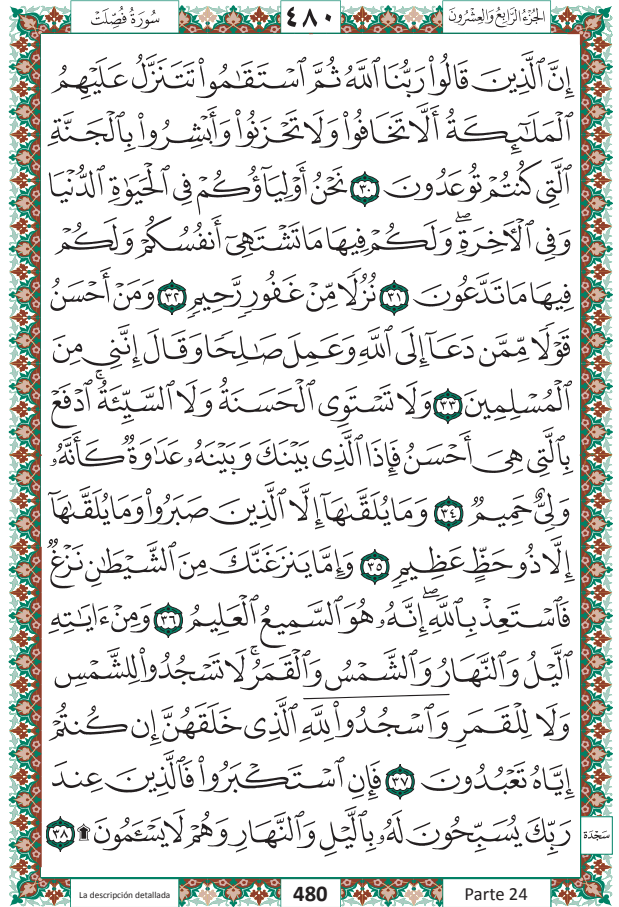 الجُزْءُ الرَّابِعُ وَالعِشْرُونَ
٤٨٠
سُورَةُ فُصِّلَتْ
إِنَّ ٱلَّذِينَ قَالُوا۟ رَبُّنَا ٱللَّهُ ثُمَّ ٱسْتَقَـٰمُوا۟ تَتَنَزَّلُ عَلَيْهِمُ
ٱلْمَلَـٰٓئِكَةُ أَلَّا تَخَافُوا۟ وَلَا تَحْزَنُوا۟ وَأَبْشِرُوا۟ بِٱلْجَنَّةِ
ٱلَّتِى كُنتُمْ تُوعَدُونَ ٣٠ نَحْنُ أَوْلِيَآؤُكُمْ فِى ٱلْحَيَوٰةِ ٱلدُّنْيَا
وَفِى ٱلْـَٔاخِرَةِ ۖ وَلَكُمْ فِيهَا مَا تَشْتَهِىٓ أَنفُسُكُمْ وَلَكُمْ
فِيهَا مَا تَدَّعُونَ ٣١ نُزُلًا مِّنْ غَفُورٍ رَّحِيمٍ ٣٢ وَمَنْ أَحْسَنُ
قَوْلًا مِّمَّن دَعَآ إِلَى ٱللَّهِ وَعَمِلَ صَـٰلِحًا وَقَالَ إِنَّنِى مِنَ
ٱلْمُسْلِمِينَ ٣٣ وَلَا تَسْتَوِى ٱلْحَسَنَةُ وَلَا ٱلسَّيِّئَةُ ۚ ٱدْفَعْ
بِٱلَّتِى هِىَ أَحْسَنُ فَإِذَا ٱلَّذِى بَيْنَكَ وَبَيْنَهُۥ عَدَٰوَةٌ كَأَنَّهُۥ
وَلِىٌّ حَمِيمٌ ٣٤ وَمَا يُلَقَّىٰهَآ إِلَّا ٱلَّذِينَ صَبَرُوا۟ وَمَا يُلَقَّىٰهَآ
إِلَّا ذُو حَظٍّ عَظِيمٍ ٣٥ وَإِمَّا يَنزَغَنَّكَ مِنَ ٱلشَّيْطَـٰنِ نَزْغٌ
فَٱسْتَعِذْ بِٱللَّهِ ۖ إِنَّهُۥ هُوَ ٱلسَّمِيعُ ٱلْعَلِيمُ ٣٦ وَمِنْ ءَايَـٰتِهِ
ٱلَّيْلُ وَٱلنَّهَارُ وَٱلشَّمْسُ وَٱلْقَمَرُ ۚ لَا تَسْجُدُوا۟ لِلشَّمْسِ
وَلَا لِلْقَمَرِ وَٱسْجُدُوا۟ لِلَّهِ ٱلَّذِى خَلَقَهُنَّ إِن كُنتُمْ
إِيَّاهُ تَعْبُدُونَ ٣٧ فَإِنِ ٱسْتَكْبَرُوا۟ فَٱلَّذِينَ عِندَ
رَبِّكَ يُسَبِّحُونَ لَهُۥ بِٱلَّيْلِ وَٱلنَّهَارِ وَهُمْ لَا يَسْـَٔمُونَ ۩ ٣٨
سَجْدَة
La descripción detallada
480
Parte 24